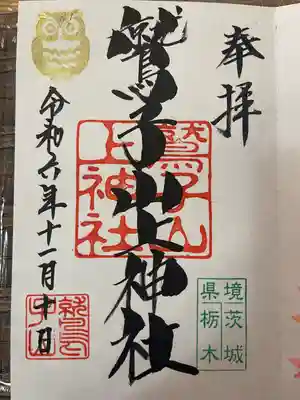 奉拝
鷲子山上神社
鷲子山
上神社
境茨城
県栃木
令和六年十一月十日